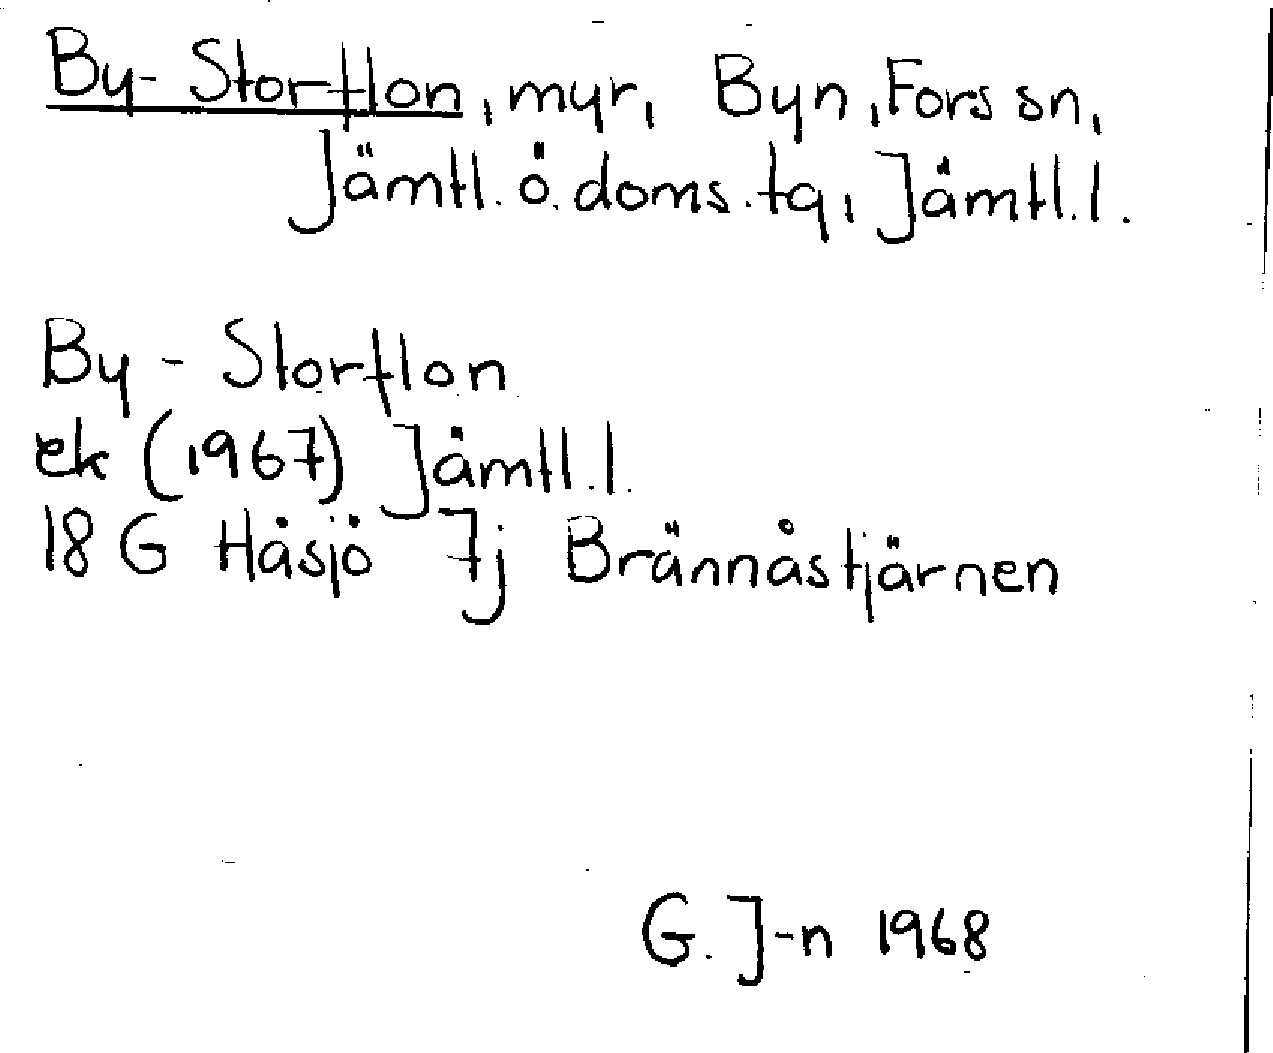 By-Storflon, myr, Byn, Fors sn,
Jämtl. ö. doms. tg, Jämtl. l.
By - Storflon
ek (1967) Jämtl. l.
18 G Håsjö 7j Brännåstjärnen
G. J-n 1968